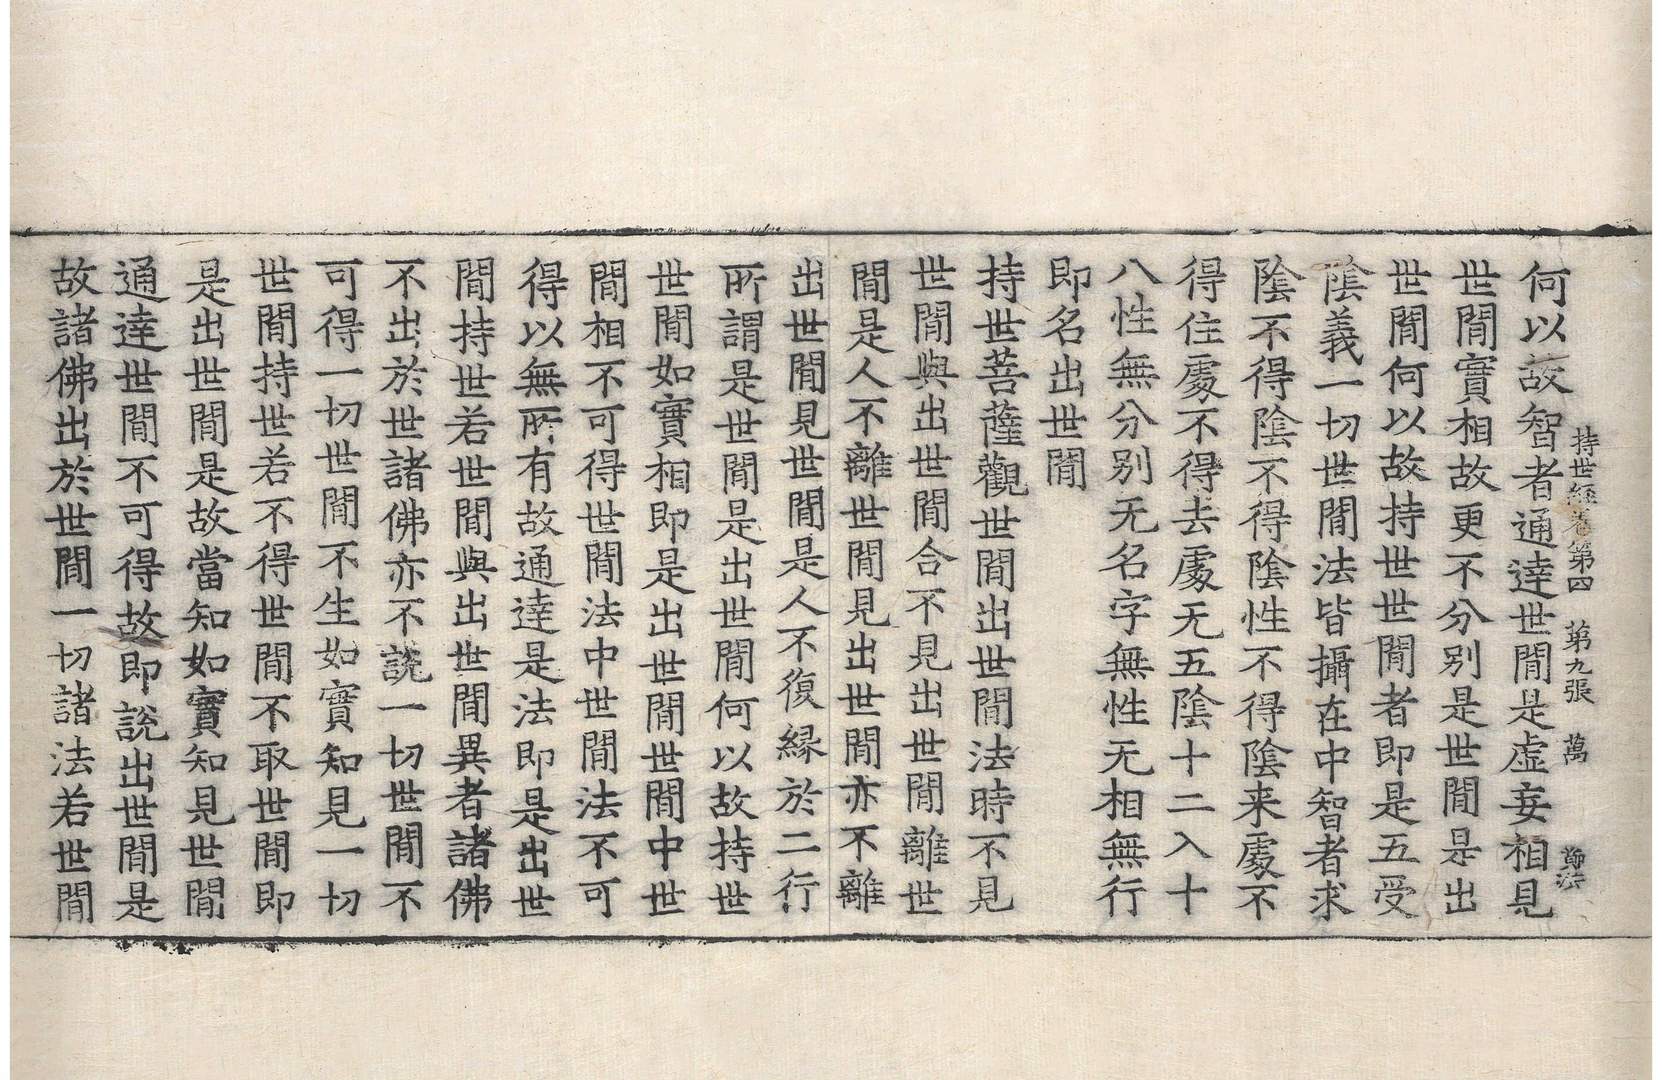 何以故智者通達世閒是虛妄相見
持世經卷第四 第九張 萬 鄭法
世閒實相故更不分别是世閒是出
世閒何以故持世世閒者即是五受
陰義一切世閒法皆攝在中智者求
陰不得陰不得陰性不得陰来處不
得住處不得去處无五陰十二入十
八性無分别无名字無性无相無行
即名出世閒
持世菩薩觀世閒出世閒法時不見
世閒與出世閒合不見出世閒離世
閒是人不離世閒見出世閒亦不離
出世閒見世閒是人不復縁於二行
所謂是世閒是出世閒何以故持世
世閒如實相即是出世閒世閒中世
閒相不可得世閒法中世閒法不可
得以無所有故通達是法即是出世
閒持世若世閒與出世閒異者諸佛
不出於世諸佛亦不說一切世閒不
可得一切世閒不生如實知見一切
世閒持世若不得世閒不取世閒即
是出世閒是故當知如實知見世閒
通達世閒不可得故即說出世閒是
故諸佛出於世閒一切諸法若世閒